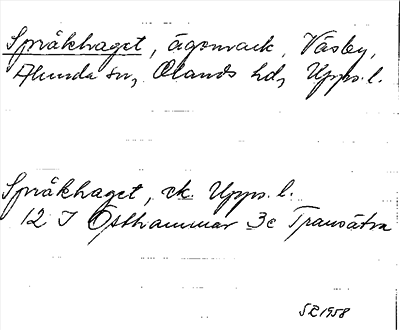 Språkhaget, ägomark, Väsby,
Alunda sn, Olands hd, Upps. l.
Språkhaget, ek. Upps. l.
12 I Östhammar 3c Transätra
SE 1958